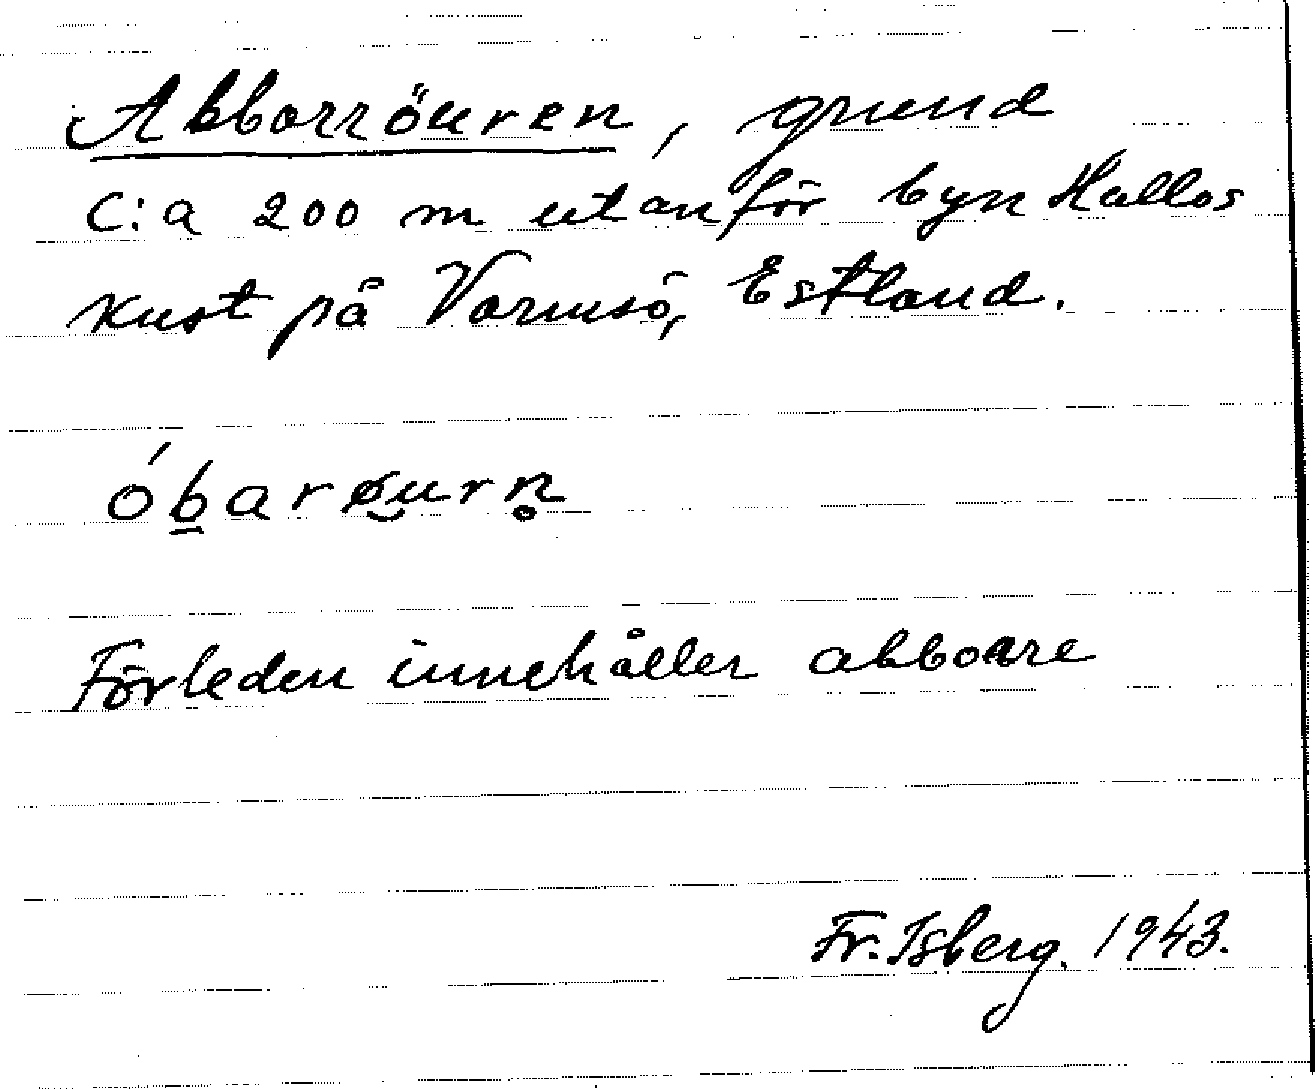 Abborröuren, grund
c:a 200 m utanför byn Hallos
kust på Vormsö, Estland.
ób̲arøu̮rn̥
Förleden innehåller abborre
Fr. Isberg. 1943.